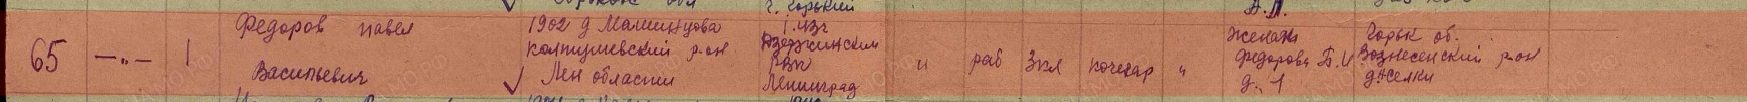 г. Горький
65 —„— 1 Федоров Павел Васильевич
1902 д
Колтушевский р-он
Лен области
Дзержинским
РВК
Ленинград
" раб 3кл кочегар "
Жена
Федорова Б. И
д. 1
Горьк об.
Вознесенский р-он